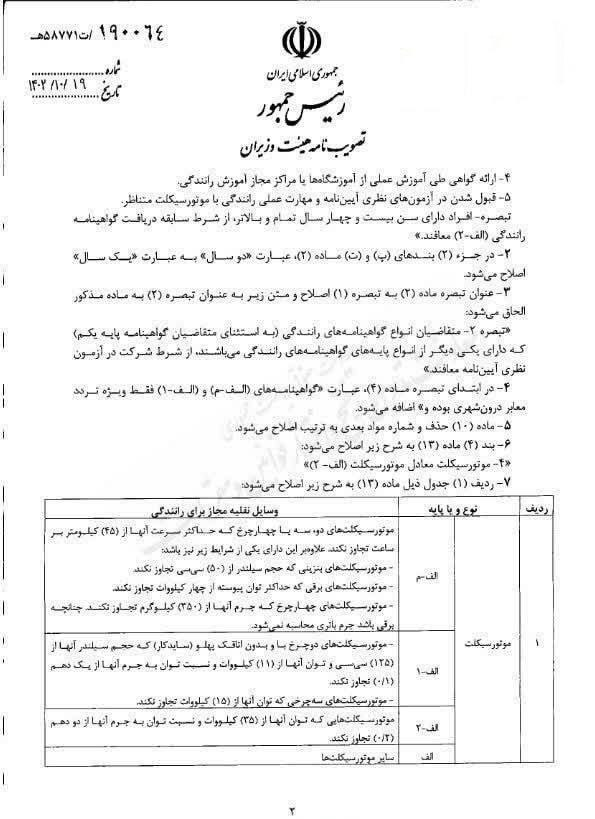 ۱۹۰۰۶۴/ت۵۸۷۷۱هـ
جمهوری اسلامی ایران
رئیس جمهور
تصویب نامه هیئت وزیران
شماره
تاریخ ۱۴۰۲/۱۰/۱۹
۴- ارائه گواهی طی آموزش عملی از آموزشگاه‌ها یا مراکز مجاز آموزش رانندگی.
۵- قبول شدن در آزمون‌های نظری آیین‌نامه و مهارت عملی رانندگی با موتورسیکلت متناظر.
تبصره- افراد دارای سن بیست و چهار سال تمام و بالاتر، از شرط سابقه دریافت گواهینامه
رانندگی (الف-۲) معافند.»
۲- در جزء (۲) بندهای (پ) و (ت) ماده (۲)، عبارت «دو سال» به عبارت «یک سال»
اصلاح می‌شود.
۳- عنوان تبصره ماده (۲) به تبصره (۱) اصلاح و متن زیر به عنوان تبصره (۲) به ماده مذکور
الحاق می‌شود:
«تبصره ۲- متقاضیان انواع گواهینامه‌های رانندگی (به استثنای متقاضیان گواهینامه پایه یکم)
که دارای یکی دیگر از انواع پایه‌های گواهینامه‌های رانندگی می‌باشند، از شرط شرکت در آزمون
نظری آیین‌نامه معافند.»
۴- در ابتدای تبصره ماده (۴)، عبارت «گواهینامه‌های (الف-م) و (الف-۱) فقط ویژه تردد
معابر درون‌شهری بوده و» اضافه می‌شود.
۵- ماده (۱۰) حذف و شماره مواد بعدی به ترتیب اصلاح می‌شود.
۶- بند (۴) ماده (۱۳) به شرح زیر اصلاح می‌شود:
«۴- موتورسیکلت معادل موتورسیکلت (الف- ۲)»
۷- ردیف (۱) جدول ذیل ماده (۱۳) به شرح زیر اصلاح می‌شود:
ردیف نوع و یا پایه وسایل نقلیه مجاز برای رانندگی
۱ موتورسیکلت
الف-م
موتورسیکلت‌های دو، سه یا چهارچرخ که حداکثر سرعت آنها از (۴۵) کیلومتر بر
ساعت تجاوز نکند. علاوه‌بر این دارای یکی از شرایط زیر نیز باشد:
- موتورسیکلت‌های بنزینی که حجم سیلندر از (۵۰) سی‌سی تجاوز نکند.
- موتورسیکلت‌های برقی که حداکثر توان پیوسته از چهار کیلووات تجاوز نکند.
- موتورسیکلت‌های چهارچرخ که جرم آنها از (۳۵۰) کیلوگرم تجاوز نکند. چنانچه
برقی باشد جرم باتری محاسبه نمی‌شود.
الف-۱
- موتورسیکلت‌های دوچرخ با و بدون اتاقک پهلو (سایدکار) که حجم سیلندر آنها از
(۱۲۵) سی‌سی و توان آنها از (۱۱) کیلووات و نسبت توان به جرم آنها از یک دهم
(۰/۱) تجاوز نکند.
- موتورسیکلت‌های سه‌چرخی که توان آنها از (۱۵) کیلووات تجاوز نکند.
الف-۲
موتورسیکلت‌هایی که توان آنها از (۳۵) کیلووات و نسبت توان به جرم آنها از دو دهم
(۰/۲) تجاوز نکند.
الف
سایر موتورسیکلت‌ها
۲